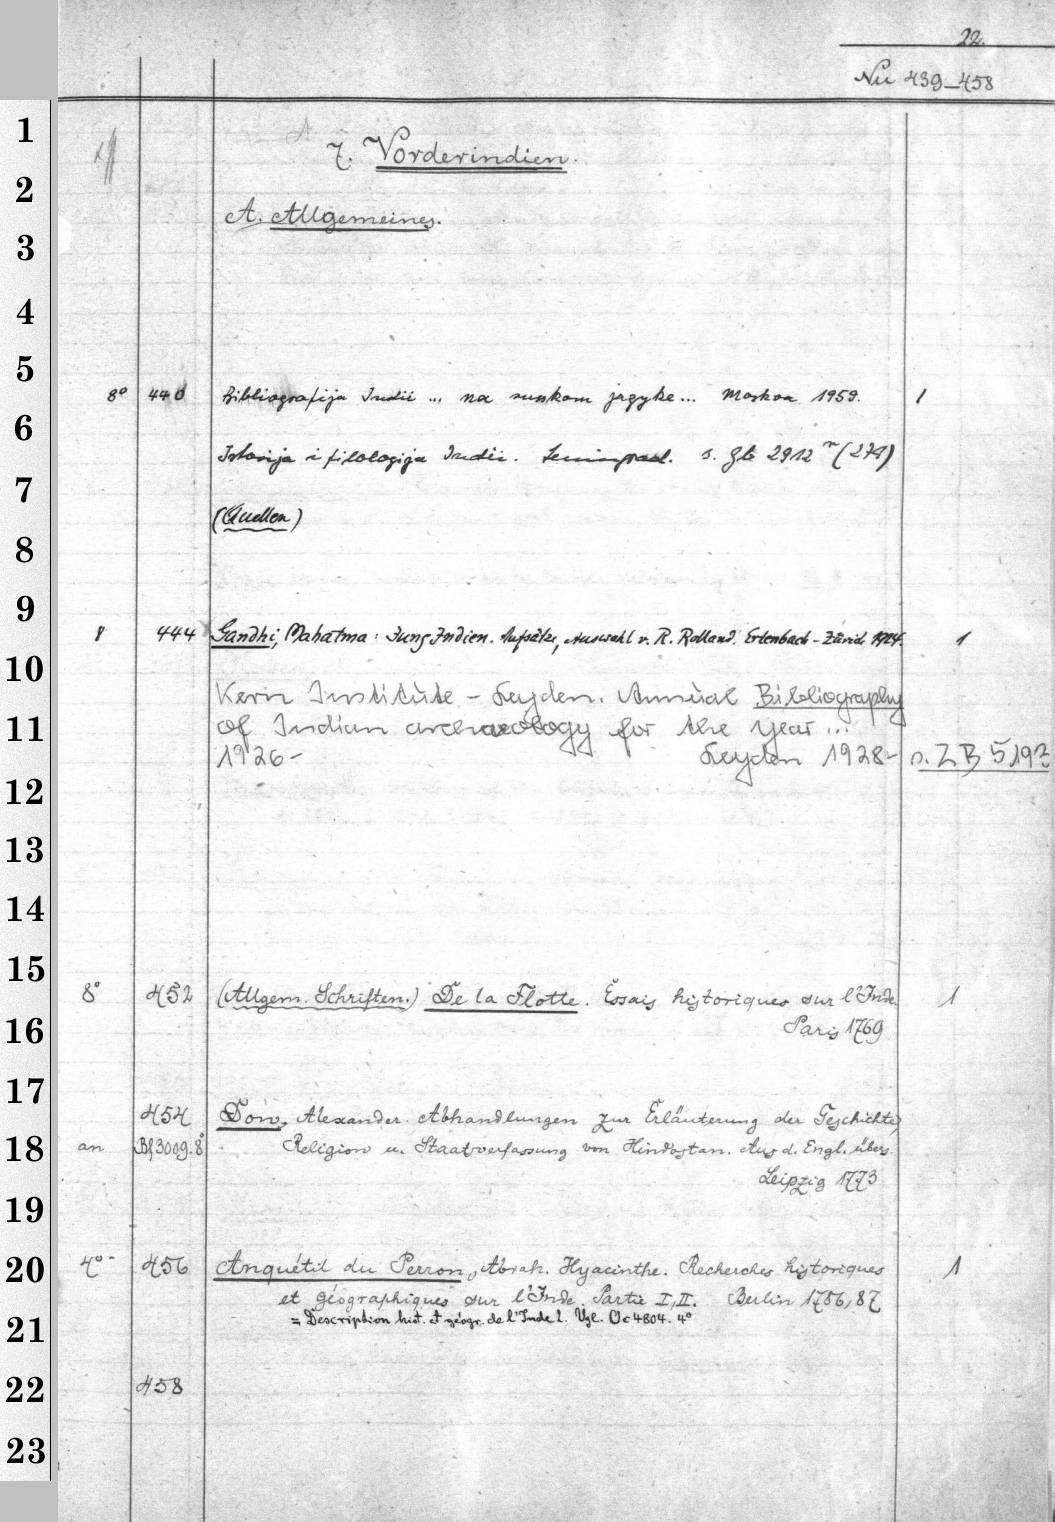 22.
Nu 439-458
7. Vorderindien.
A. Allgemeines.
8° 440 Bibliografija Indii ... na russkom jazyke... Moskva 1959. 1
Istorija i filologija Indii. Leningrad. s. Zb 2912 n (279)
(Quellen)
8 444 Gandhi, Mahatma: Jung Indien. Aufsätze, Auswahl v. R. Rolland. Erlenbach-Zürich 1924. 1
Kern Institute - Leyden. Annual Bibliography
of Indian archaeology for the year ...
1926- Leyden 1928- s. ZB 519
8° 452 (Allgem. Schriften.) De la Flotte. Essais historiques sur l'Inde.
Paris 1769 1
454 Dow, Alexander. Abhandlungen zur Erläuterung der Geschichte,
an Bf 3009.8° Religion u. Staatsverfassung von Hindostan. Aus d. Engl. übers.
Leipzig 1773
4° 456 Anquétil du Perron, Abrah. Hyacinthe. Recherches historiques 1
et géographiques sur l'Inde. Partie I, II. Berlin 1786, 87
= Description hist. et géogr. de l'Inde 2. Vgl. Oc 4804. 4°
458
1
2
3
4
5
6
7
8
9
10
11
12
13
14
15
16
17
18
19
20
21
22
23